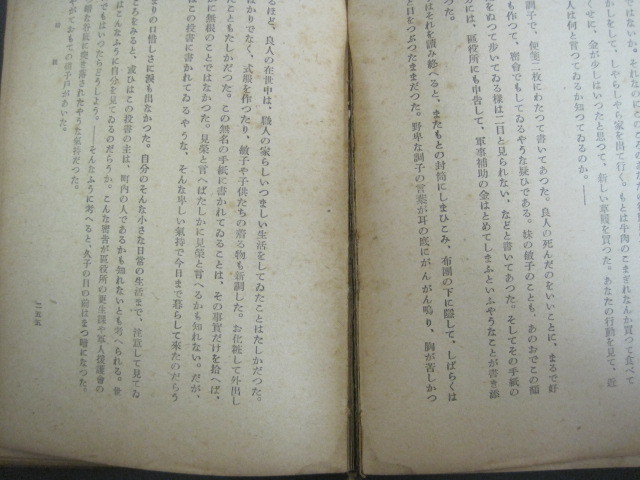 ではないか。そんなの
かしをして、しやらしやら家を出て行く。もとは牛肉のこまぎれなんか買つて食べて
くせに、金が少しはいつたと思つて、新しい茶碗を買つた。あなたの行動を見て、近
人は何と言つてゐるか知つてゐるのか。――
調子で、便箋三枚にわたつて書いてあつた。良人の死んだのをいいことに、まるで好
も作つて、密会でもしてゐるやうな疑ひである。妹の敏子のことも、あのおでこの顔
をぬつて歩いてゐる様は二目と見られない、などと書いてあつた。そしてその手紙の
には、区役所にも申告して、軍事補助の金はとめてしまふといふやうなことが書き添
つた。
はそれを読み終へると、またもとの封筒にしまひこみ、布団の下に隠して、しばらくは
と目をつぶつたままだつた。野卑な調子の言葉が耳の底にがんがん鳴り、胸が苦しかつ
るほど、良人の在世中は、職人の家らしいつましい生活をしてゐたことはたしかだつた。
ばかりでなく、式服を作つたり、敏子や子供たちの着る物も新調した。お化粧して外出し
こともたしかだつた。この無名の手紙に書かれてゐることは、その事実だけを拾へば、
に無根のことではなかつた。見栄と言へばたしかに見栄と言へるかも知れない。だが、
はこの投書に書かれてゐるやうな、そんな卑しい気持で今日まで暮らして来たのだらう
まりの口惜しさに涙も出なかつた。自分のそんな小さな日常の生活まで、注意して見てゐ
ところをみると、或ひはこの投書の主は、町内の人であるかも知れないとも考へられる。世
はこんなふうに自分を見てゐるのだらうか。こんな密告が区役所の更生課や軍人援護会の
でもはいつたらどうしよう。――そんなふうに考へると、久子の目の前はまつ暗になつた。
な谷底に突き落されたやうな気持だつた。
やがておもての硝子戸があいた。
二五五